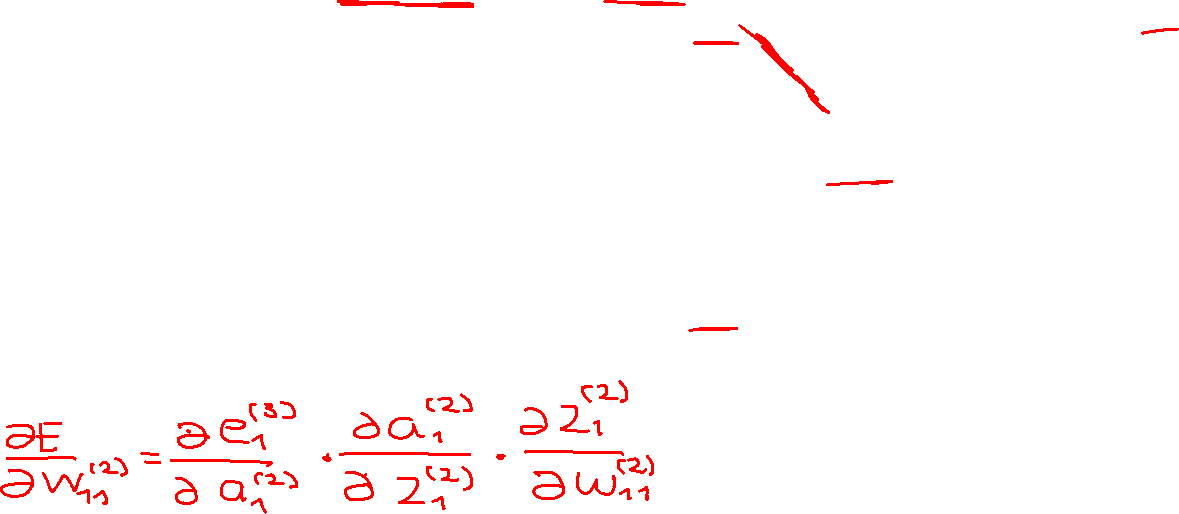 ∂E/∂w₁₁⁽²⁾ = ∂e₁⁽³⁾/∂a₁⁽²⁾ · ∂a₁⁽²⁾/∂z₁⁽²⁾ · ∂z₁⁽²⁾/∂w₁₁⁽²⁾